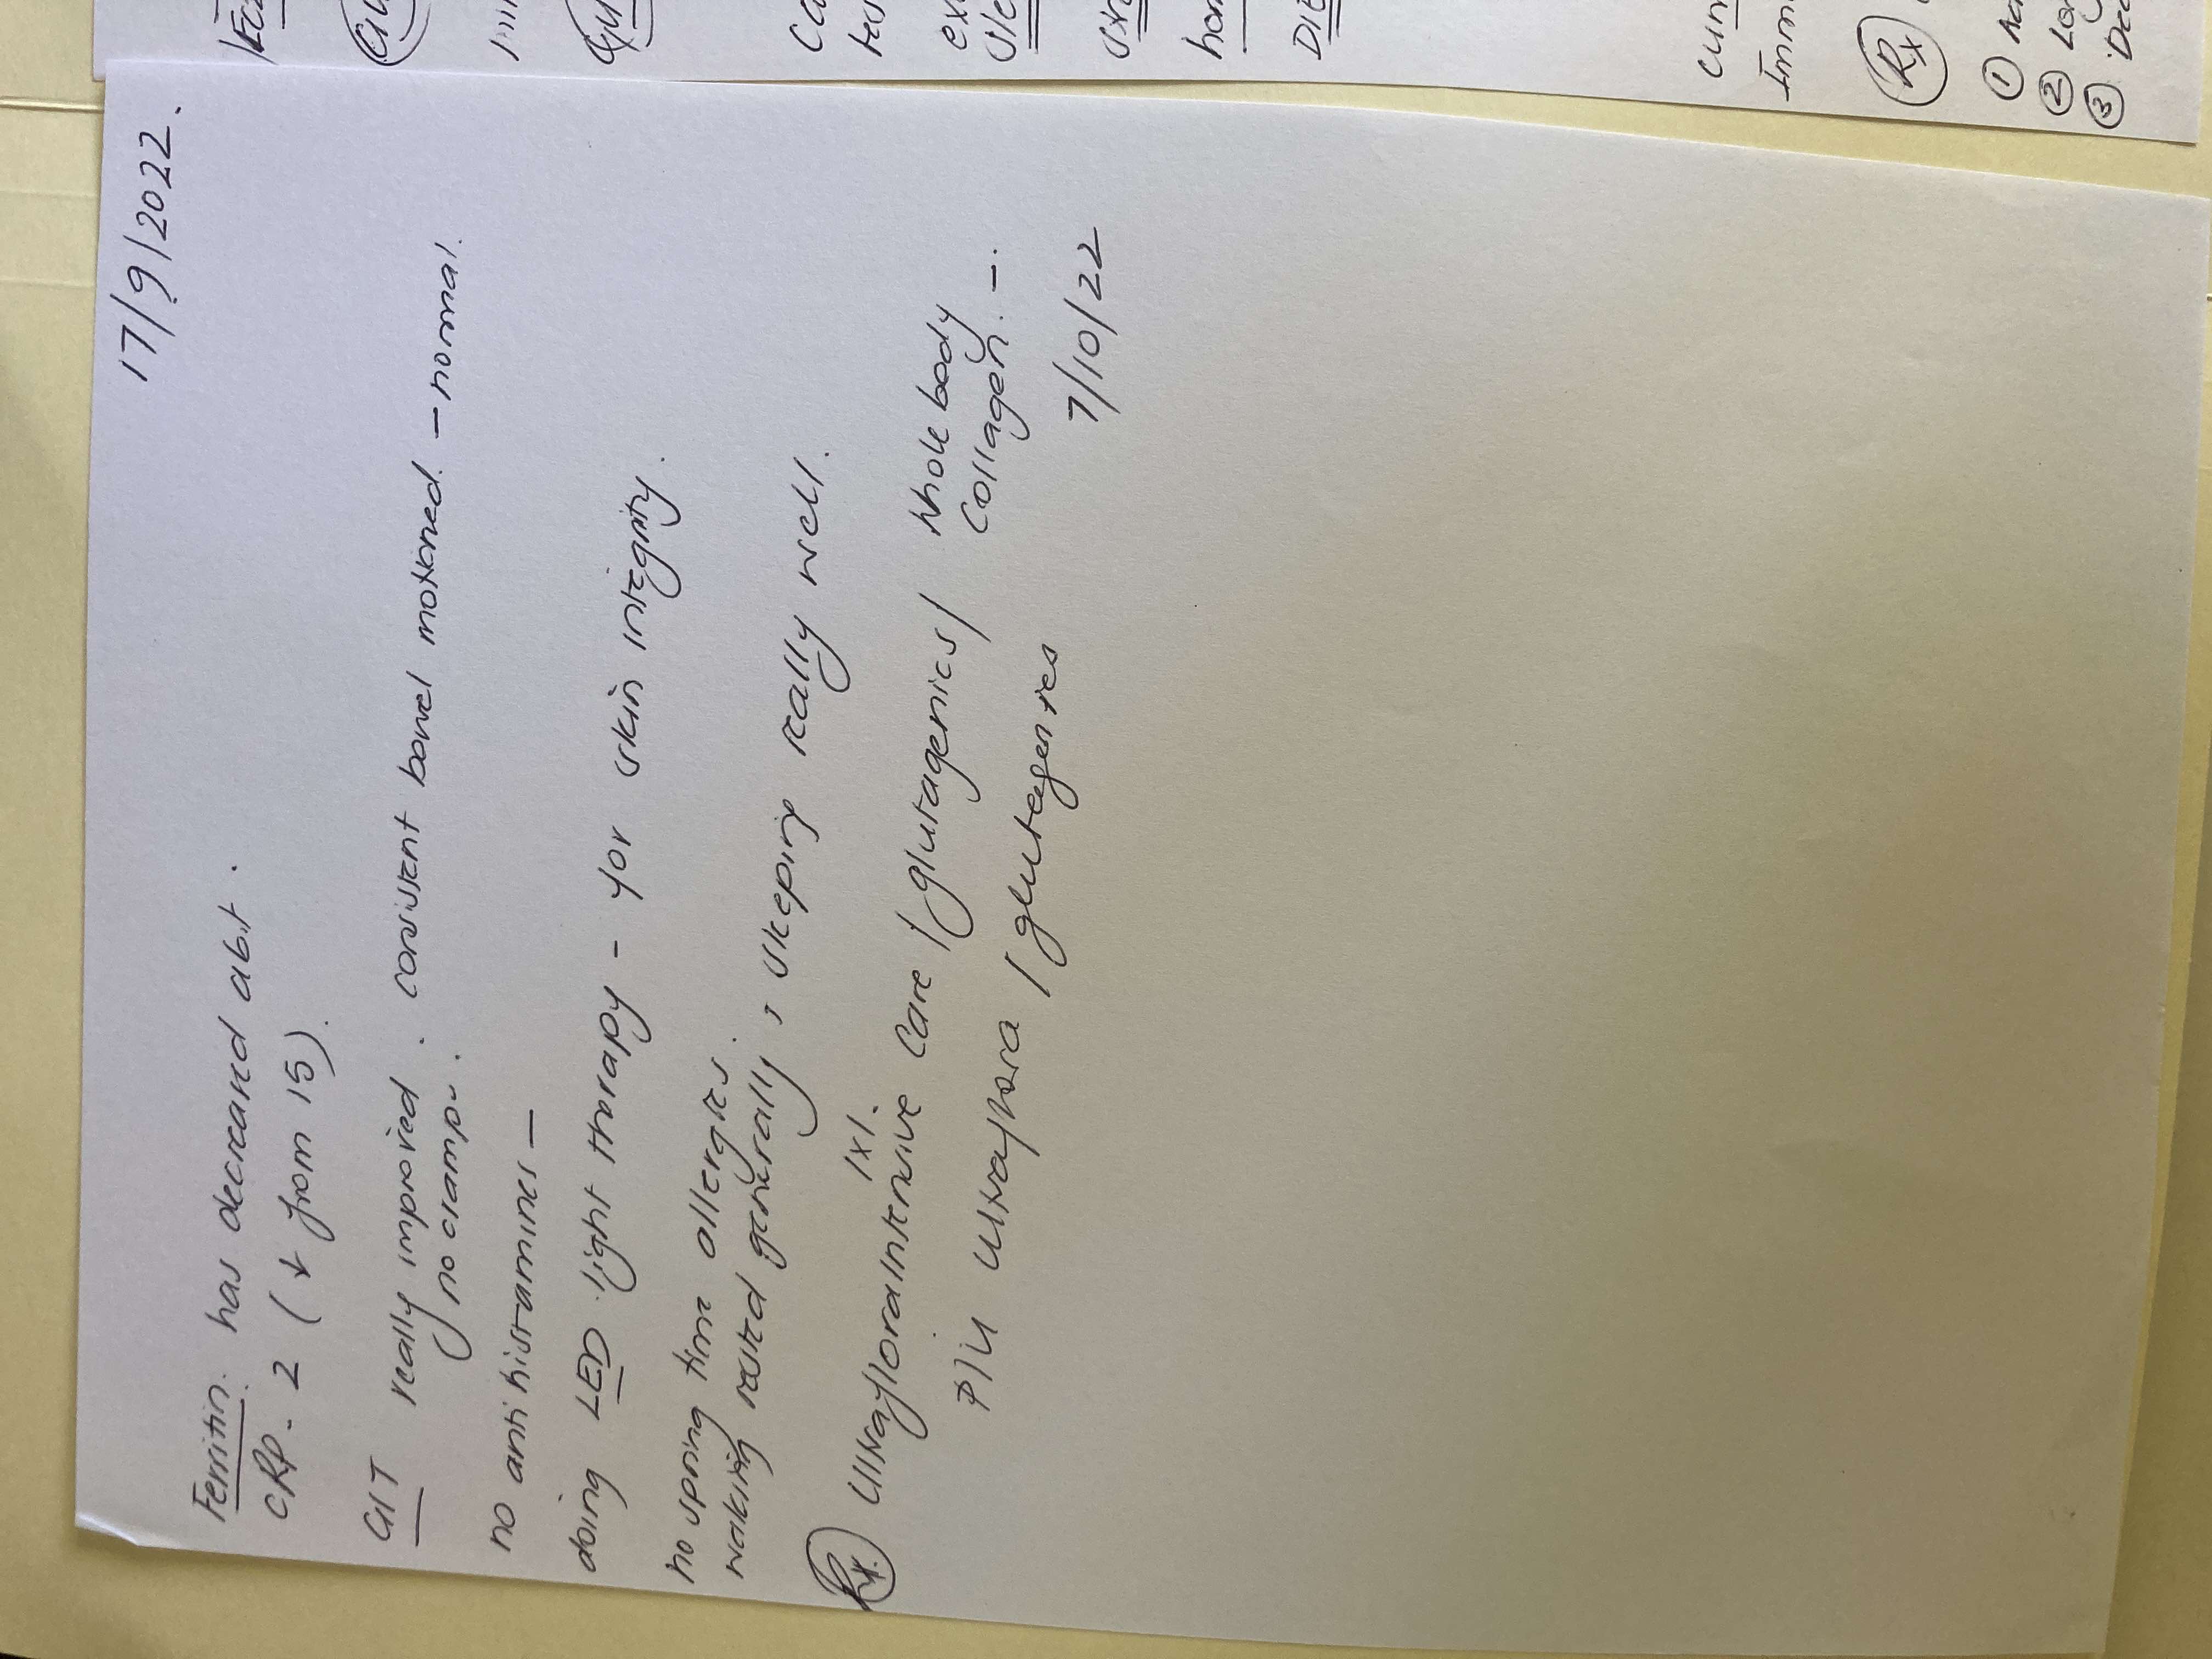 17/9/2022.
Ferritin: has decreased abit.
CRP - 2 (↓ from 15).
GIT really improved. consistent bowel motioned. - normal.
no cramps.
no antihistamines -
doing LED light therapy - for skin integrity.
no spring time allergies.
waking rested generally, sleeping really well.
1x1.
Rx. Ultrafloraintensive Care / glutagenics / Whole body
Collagen. -.
P/U Ultraflora / glutagenics 7/10/22
Rx
①
②
③